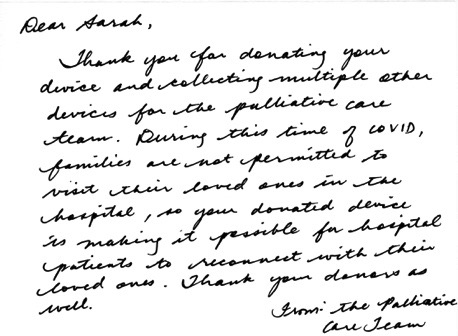 Dear Sarah,
Thank you for donating your
device and collecting multiple other
devices for the palliative care
team. During this time of COVID,
families are not permitted to
visit their loved ones in the
hospital, so your donated device
is making it possible for hospital
patients to reconnect with their
loved ones. Thank your donors as
well.
From: the Palliative
Care Team